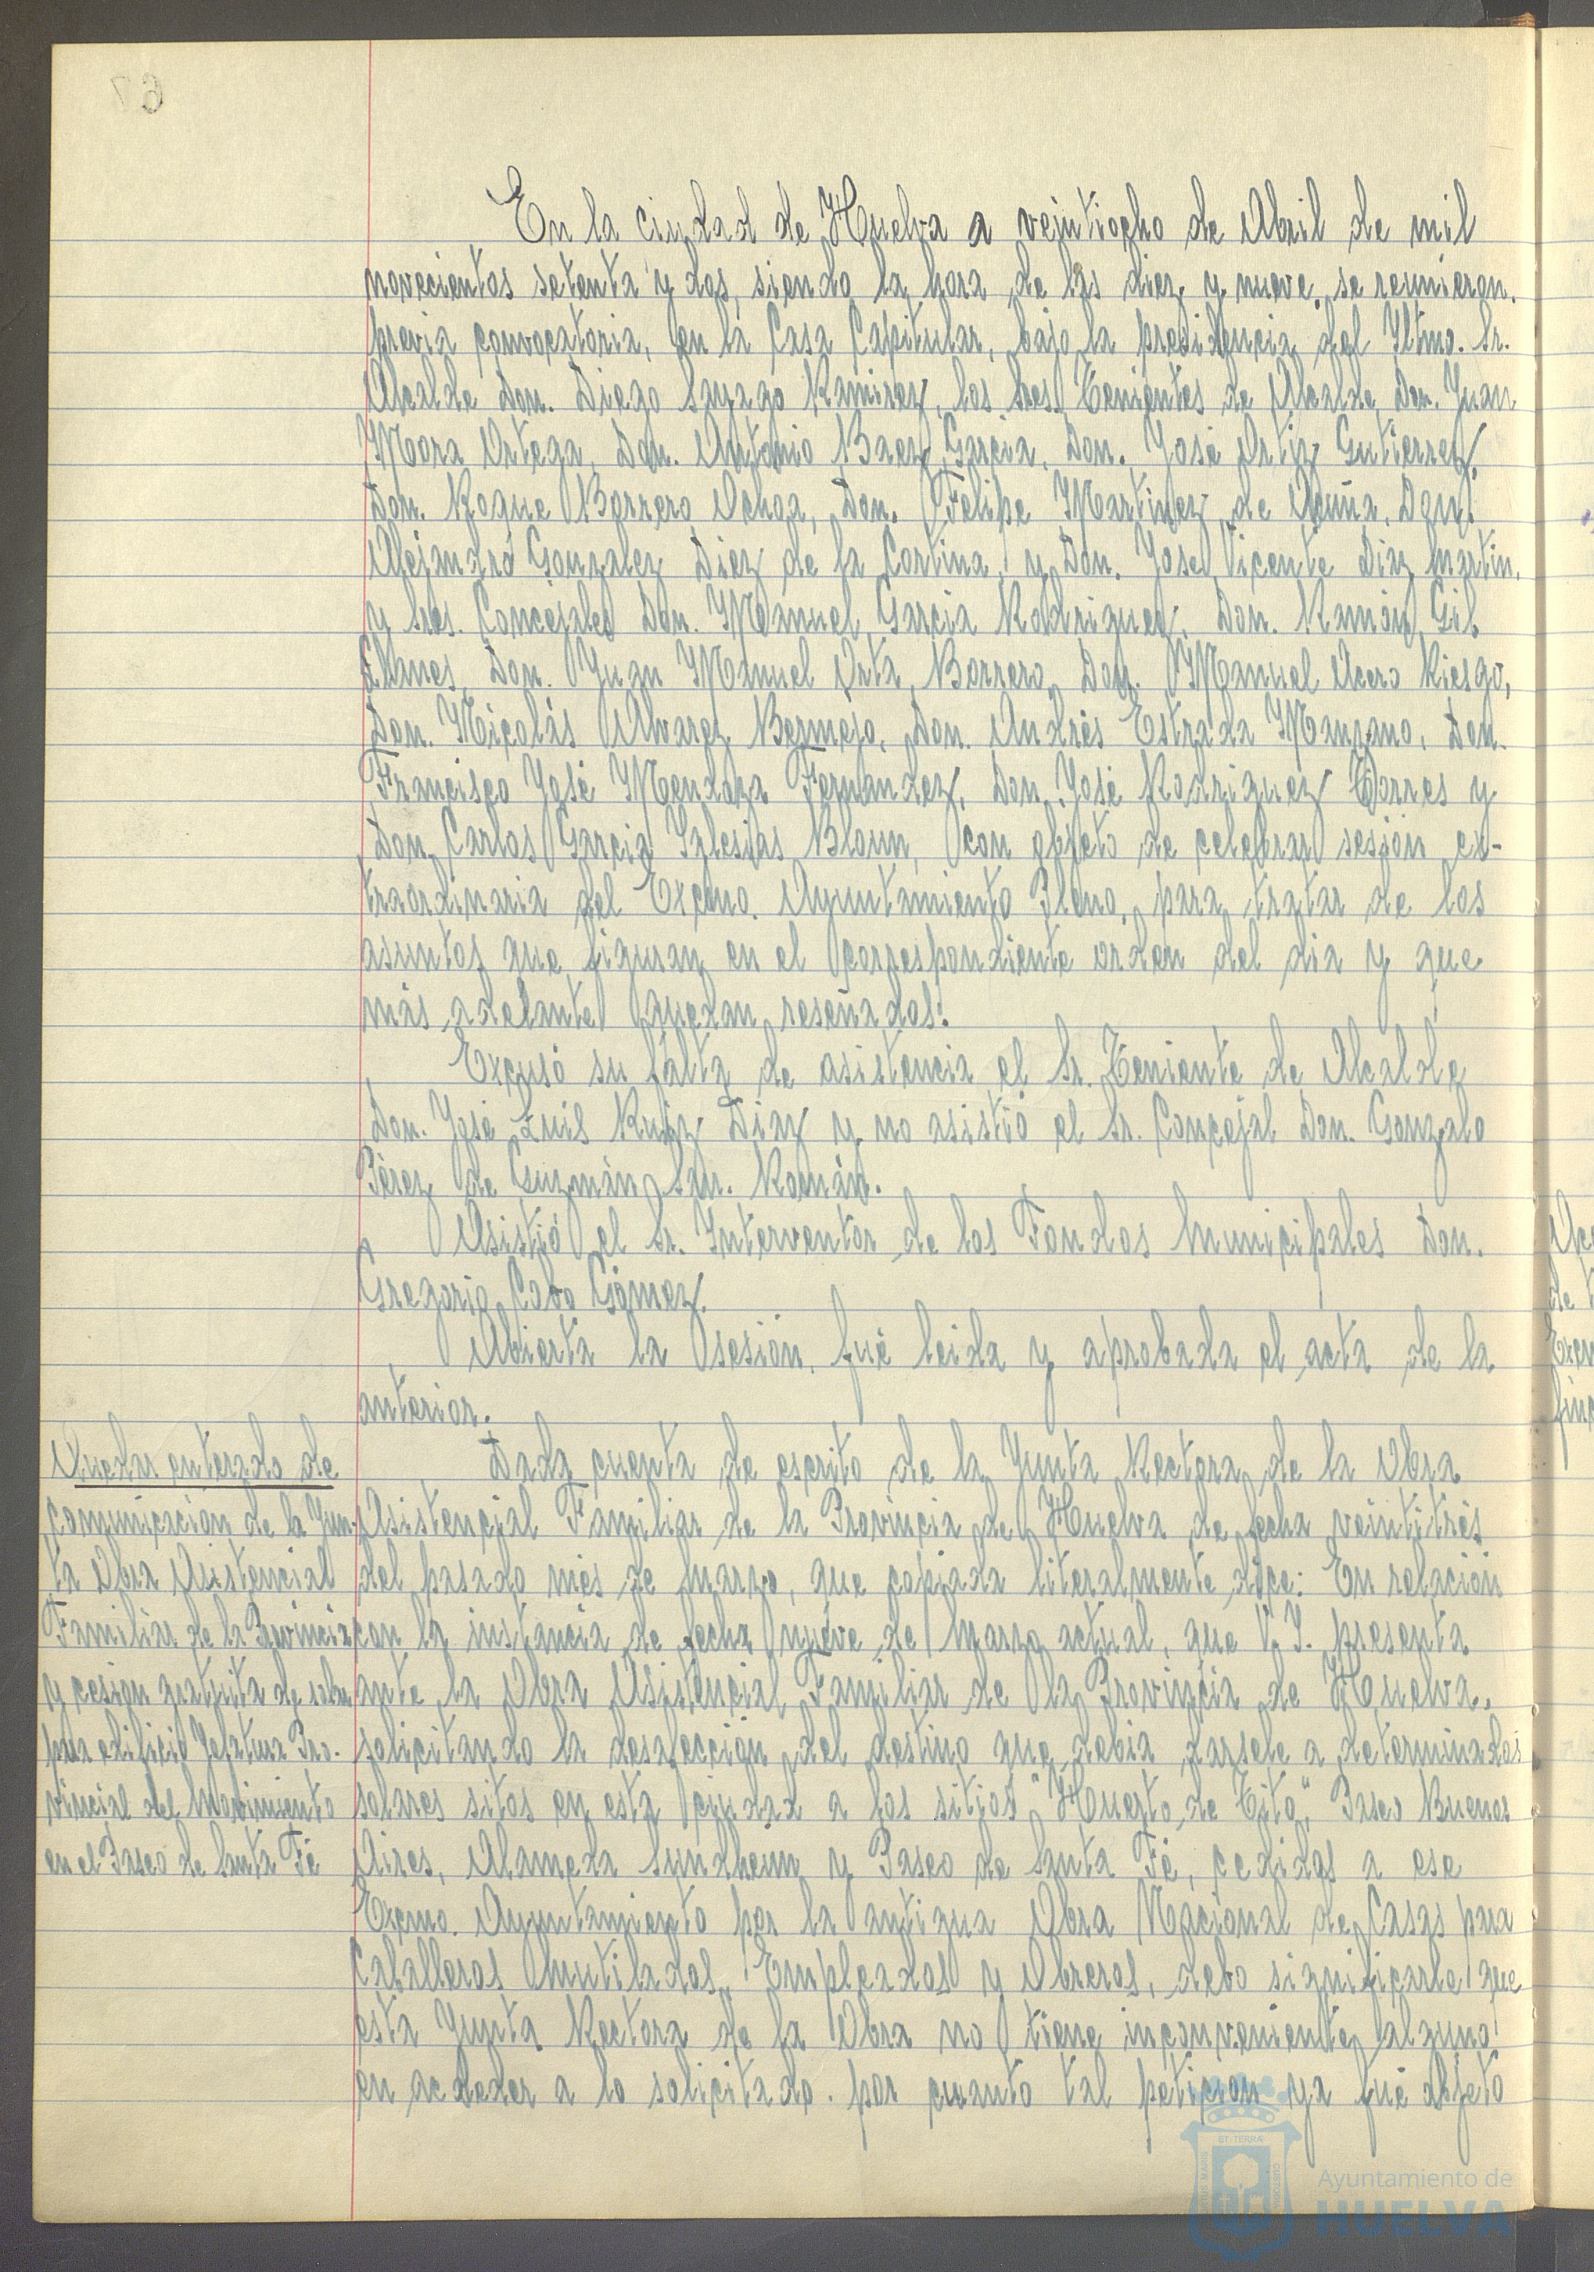 En la ciudad de Huelva a veintiocho de Abril de mil
novecientos setenta y dos, siendo la hora de las diez y nueve, se reunieron,
previa convocatoria, en la Casa Capitular, bajo la presidencia del Iltmo. Sr.
Alcalde Don. Diego Sayago Ramirez, los Sres. Tenientes de Alcalde Don. Juan
Mora Ortega, Don. Antonio Baez Garcia, Don. José Ortiz Gutierrez,
Don. Roque Borrero Ochoa, Don. Felipe Martinez de Acuña, Don.
Alejandro Gonzalez Diez de la Cortina y Don. Jose Vicente Diaz Martin,
y Sres. Concejales Don. Manuel Garcia Rodriguez, Don. Ramón Gil
Don. Juan Manuel Orta Borrero, Don. Manuel Acero Riesgo,
Don. Nicolás Alvarez Bermejo, Don. Andrés Estrada Manzano, Don.
Francisco José Mendoza Fernandez, Don. José Rodriguez Torres y
Don. Carlos Garcia Iglesias Bloun, con objeto de celebrar sesión ex-
traordinaria del Excmo. Ayuntamiento Pleno, para tratar de los
asuntos que figuran en el correspondiente orden del dia y que
más adelante quedan reseñados.
Excusó su falta de asistencia el Sr. Teniente de Alcalde
Don. José Luis Ruiz Diaz y no asistió el Sr. Concejal Don. Gonzalo
Pérez de Guzmán San. Román.
Asistió el Sr. Interventor de los Fondos Municipales Don.
Gregorio Cabo Gómez.
Abierta la sesión, fué leida y aprobada el acta de la
anterior.
Quedar enterado de
comunicación de la Jun-
ta Obra Asistencial
Familiar de la Provincia
y cesion gratuita de solar
para edificio Jefatura Pro-
vincial del Movimiento
en el Paseo de Santa Fé
Dada cuenta de escrito de la Junta Rectora de la Obra
Asistencial Familiar de la Provincia de Huelva de fecha veintitrés
del pasado mes de Marzo, que copiada literalmente dice: En relación
con la instancia de fecha nueve de Marzo actual, que V. I. presenta
ante la Obra Asistencial Familiar de la Provincia de Huelva,
solicitando la desafección del destino que debia darsele a determinados
solares sitos en esta ciudad a los sitios "Huerto de Tito", Paseo Buenos
Aires, Alameda Sundheim y Paseo de Santa Fé, cedidos a ese
Excmo. Ayuntamiento por la antigua Obra Nacional de Casas para
Caballeros Mutilados, Empleados y Obreros, debo significarle que
esta Junta Rectora de la Obra no tiene inconveniente alguno
en acceder a lo solicitado. por cuanto tal peticion ya fué objeto
Ayuntamiento de
HUELVA